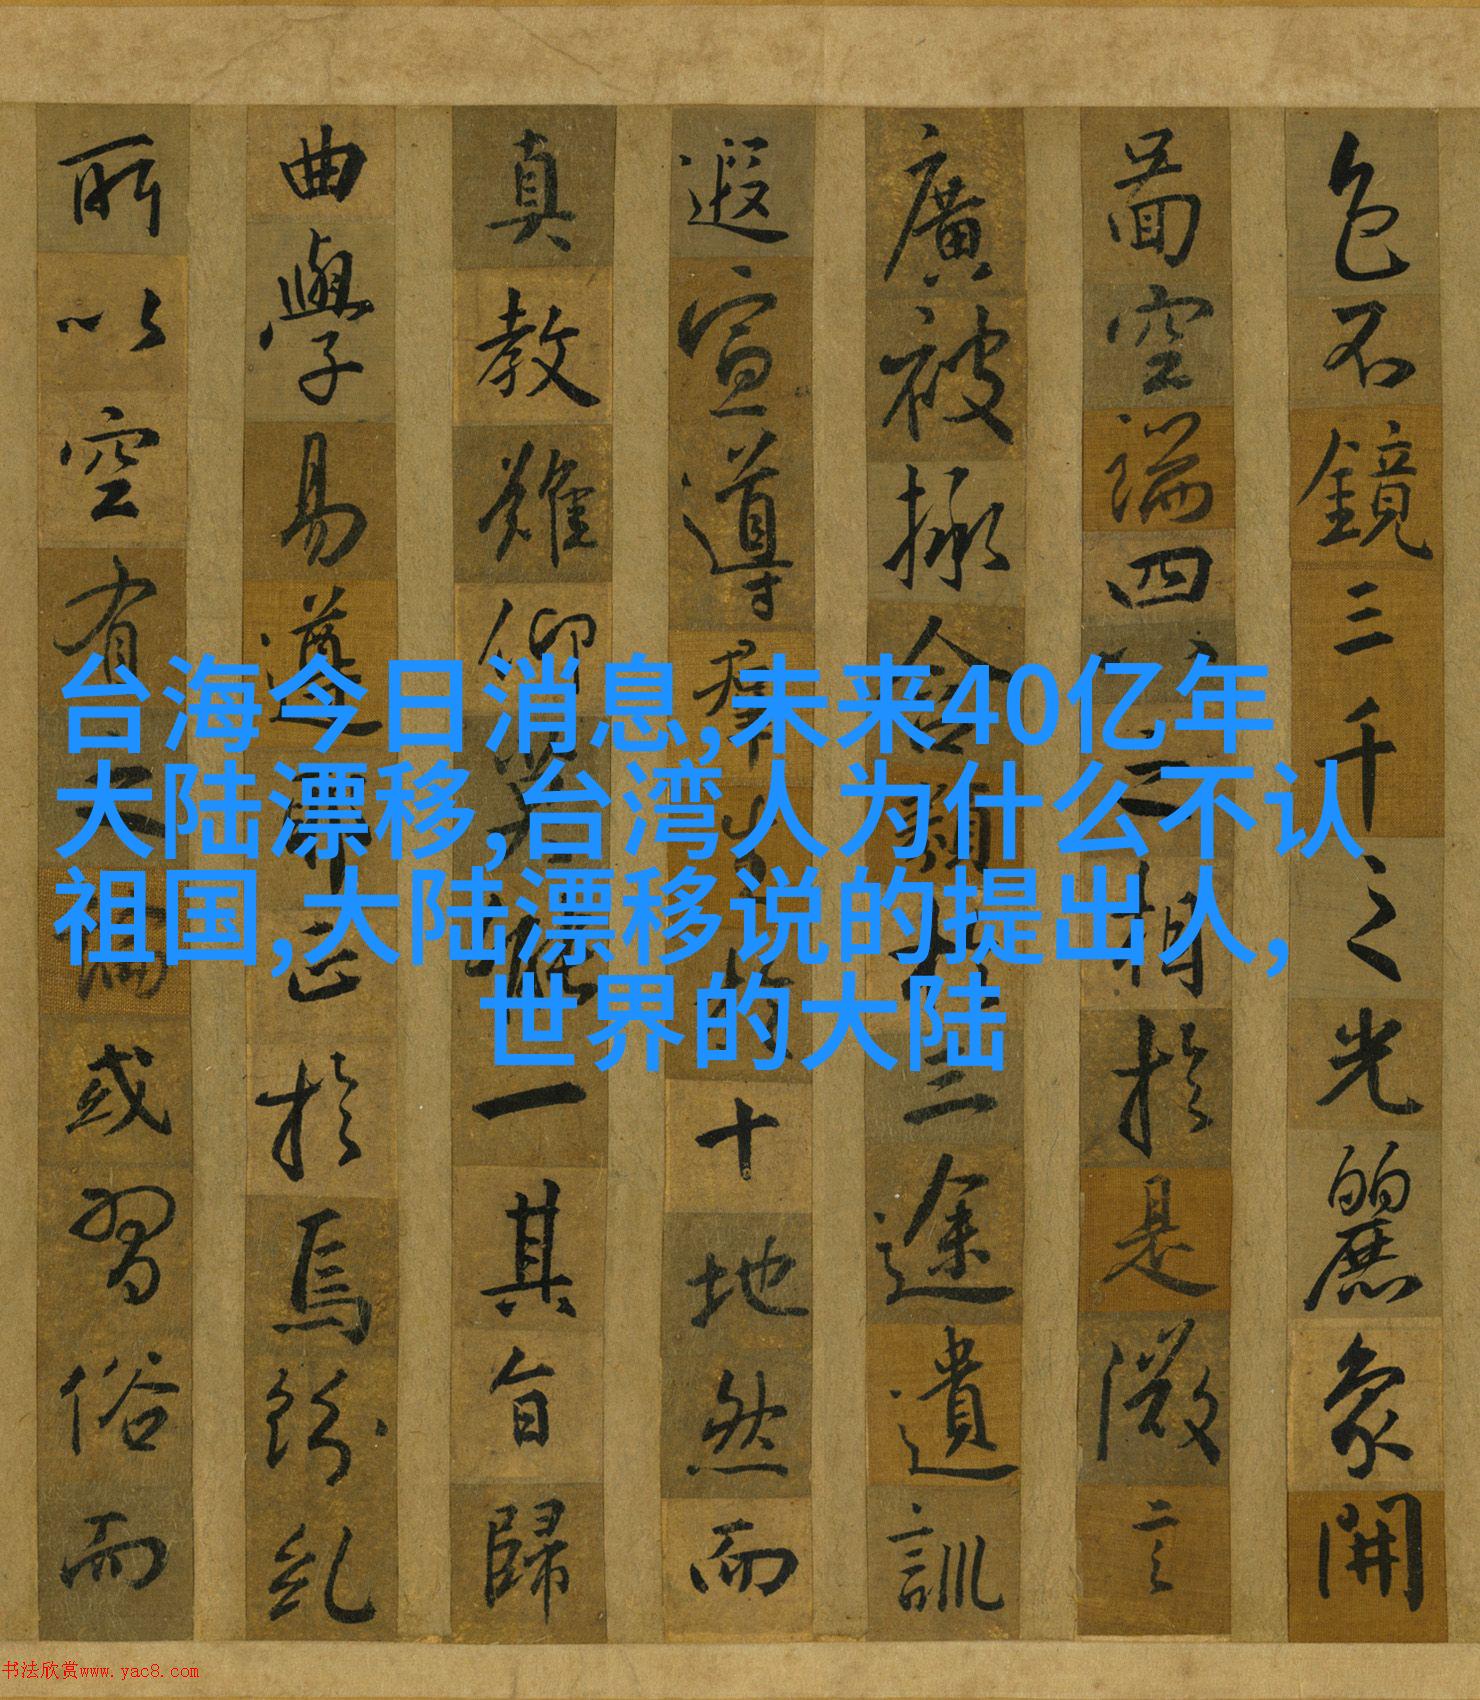 色不鏡三千之光麗象開
啚空端四八之相於是微言
廣被拯含類於三途遺訓
遐宣導群生於十地然而
真教難仰莫能一其旨歸
曲學易遵邪正於焉紛糺
所以空有之論或習俗而
台海今日消息,未来40亿年
大陆漂移,台湾人为什么不认
祖国,大陆漂移说的提出人,
世界的大陆
书法欣赏www.yac8.com